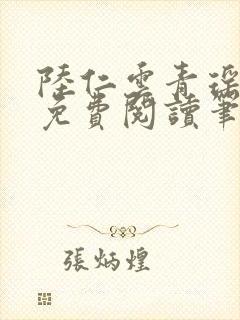 陸仁雲青瑶
免費閱讀筆
張炳煌